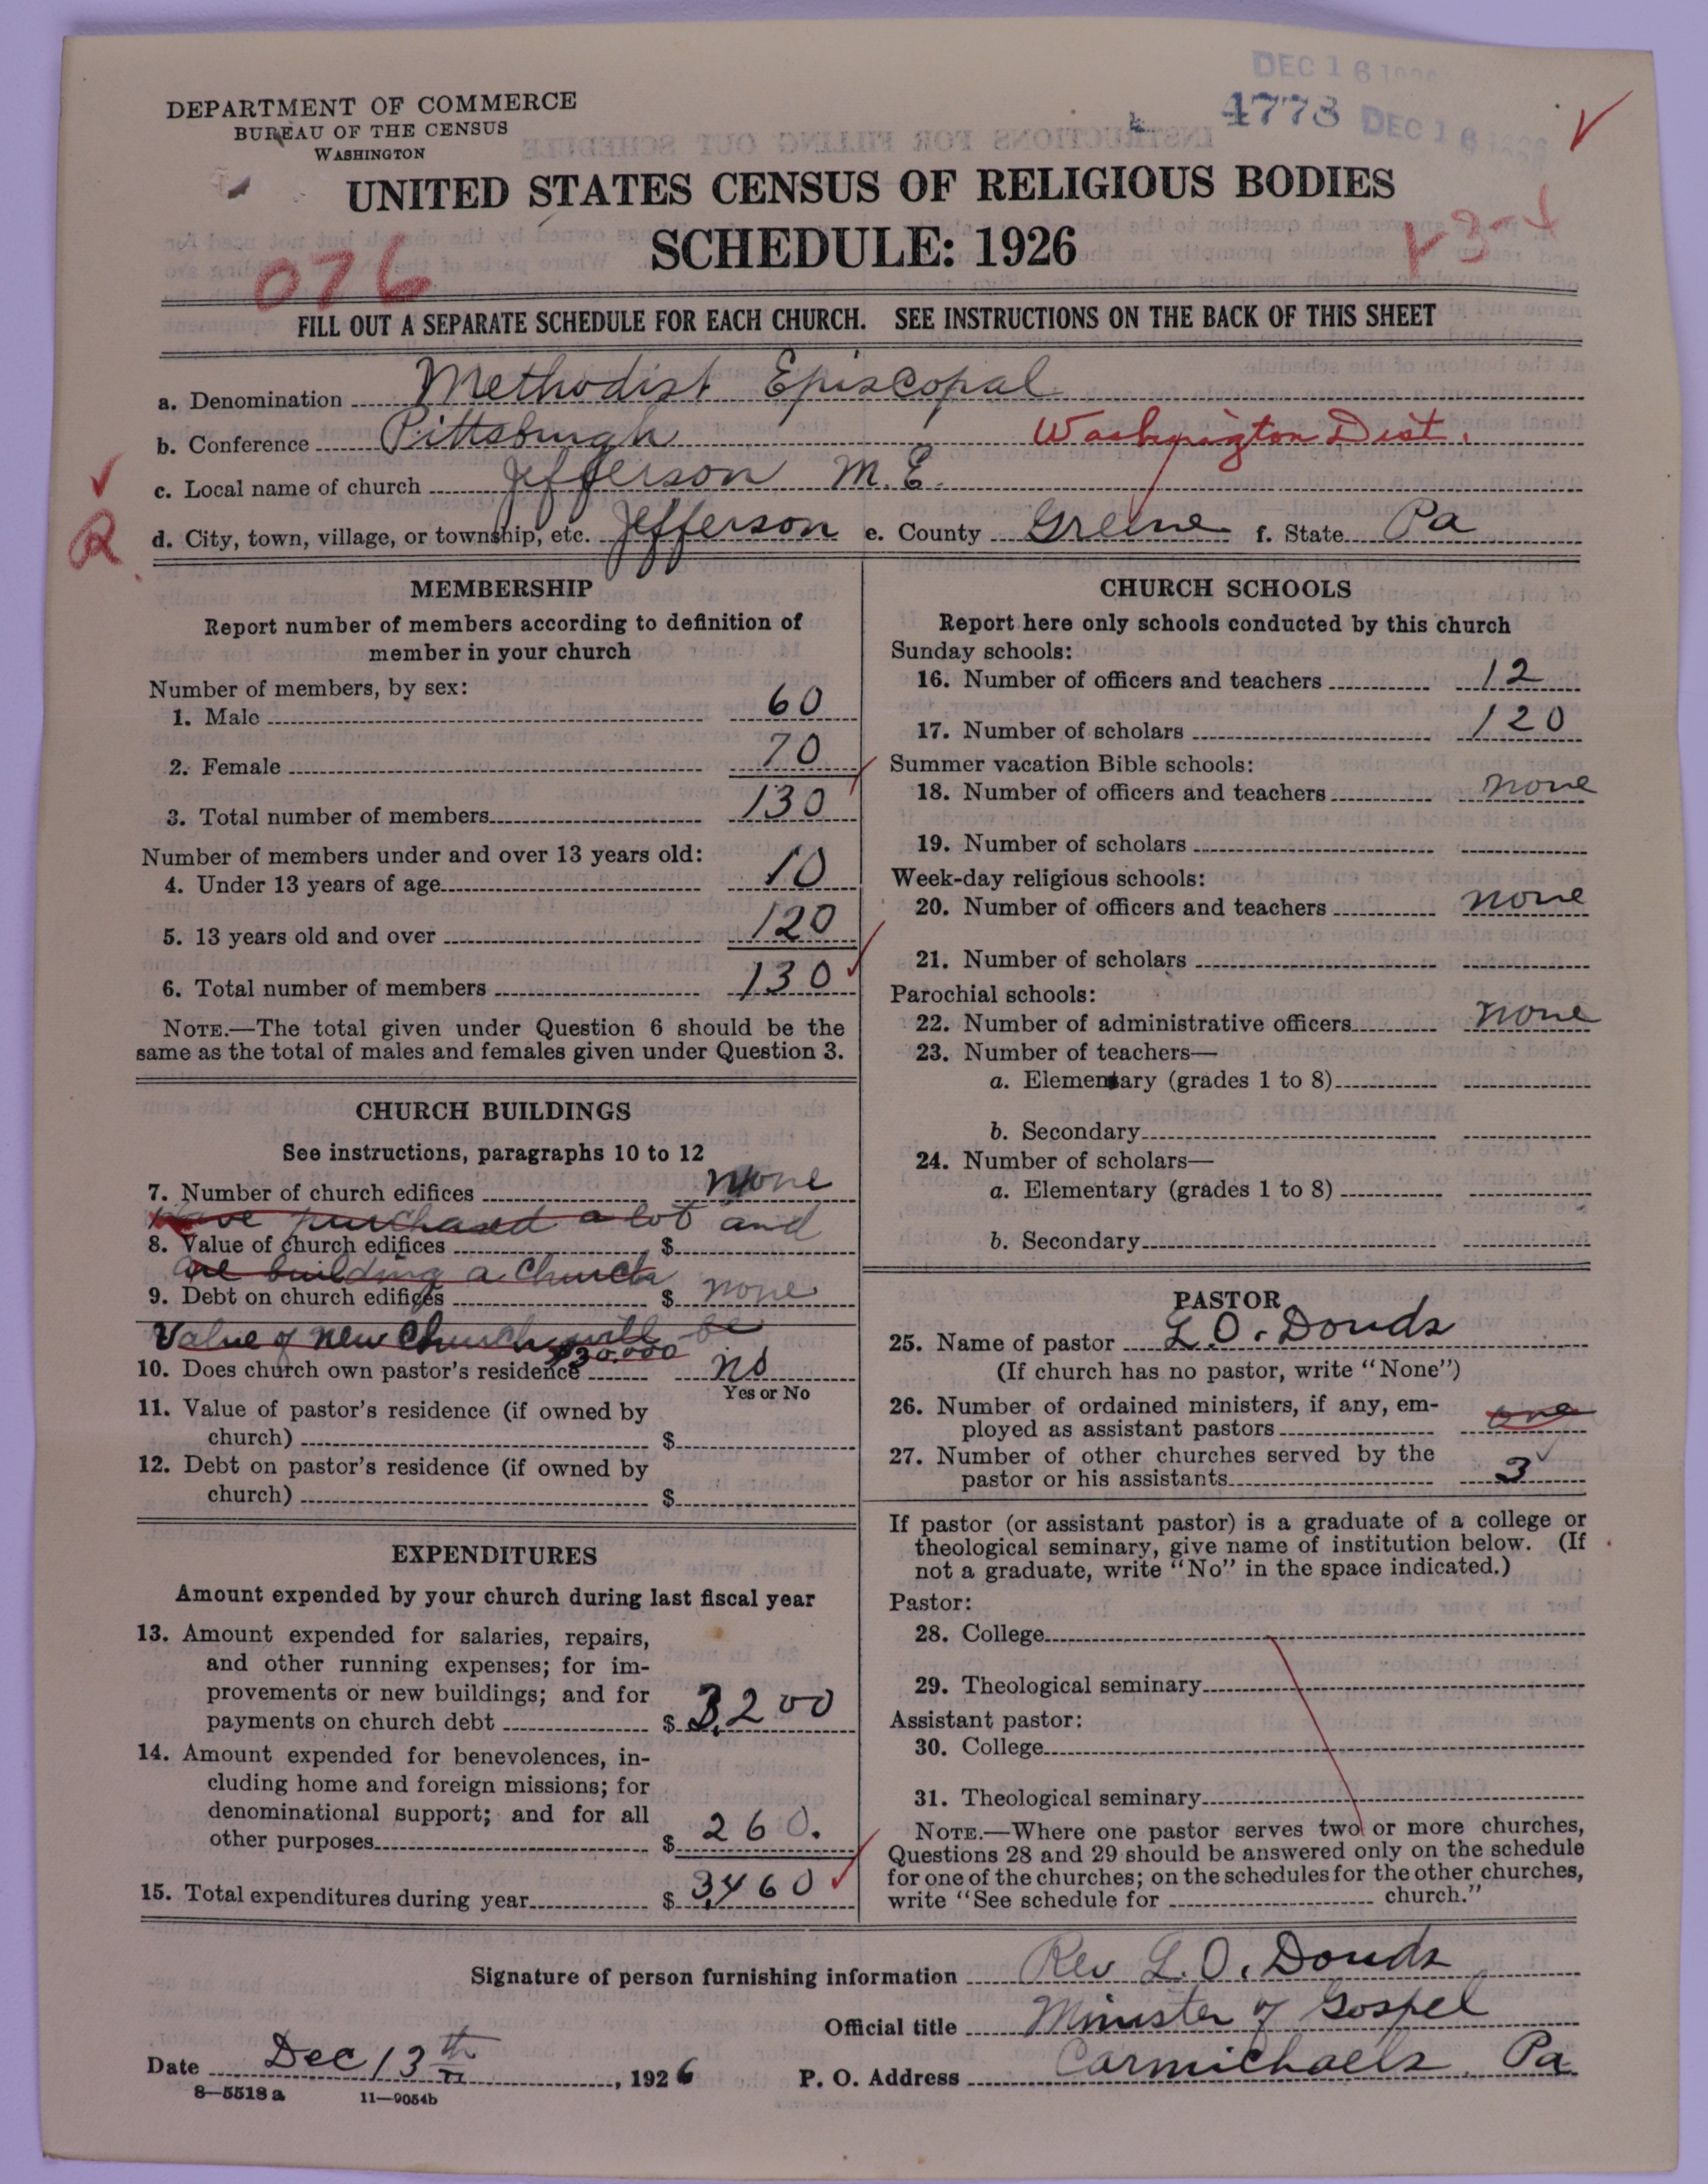 DEC 16
4773 DEC 16
DEPARTMENT OF COMMERCE
BUREAU OF THE CENSUS
WASHINGTON
UNITED STATES CENSUS OF RELIGIOUS BODIES
SCHEDULE: 1926
076
FILL OUT A SEPARATE SCHEDULE FOR EACH CHURCH. SEE INSTRUCTIONS ON THE BACK OF THIS SHEET
a. Denomination Methodist Episcopal
b. Conference Pittsburgh Washington Dist.
c. Local name of church Jefferson M.E.
d. City, town, village, or township, etc. Jefferson e. County Greene f. State Pa
R
MEMBERSHIP
Report number of members according to definition of
member in your church
Number of members, by sex:
1. Male 60
2. Female 70
3. Total number of members 130
Number of members under and over 13 years old:
4. Under 13 years of age 10
5. 13 years old and over 120
6. Total number of members 130
NOTE.—The total given under Question 6 should be the
same as the total of males and females given under Question 3.
CHURCH BUILDINGS
See instructions, paragraphs 10 to 12
7. Number of church edifices none
Have purchased a lot and
8. Value of church edifices $
are building a Church
9. Debt on church edifices $ none
Value of New Church will be
$30.000
10. Does church own pastor's residence no
Yes or No
11. Value of pastor's residence (if owned by
church) $
12. Debt on pastor's residence (if owned by
church) $
EXPENDITURES
Amount expended by your church during last fiscal year
13. Amount expended for salaries, repairs,
and other running expenses; for im-
provements or new buildings; and for
payments on church debt $ 3,200
14. Amount expended for benevolences, in-
cluding home and foreign missions; for
denominational support; and for all
other purposes $ 260.
15. Total expenditures during year $ 3,460
CHURCH SCHOOLS
Report here only schools conducted by this church
Sunday schools:
16. Number of officers and teachers 12
17. Number of scholars 120
Summer vacation Bible schools:
18. Number of officers and teachers none
19. Number of scholars
Week-day religious schools:
20. Number of officers and teachers none
21. Number of scholars
Parochial schools:
22. Number of administrative officers none
23. Number of teachers—
a. Elementary (grades 1 to 8)
b. Secondary
24. Number of scholars—
a. Elementary (grades 1 to 8)
b. Secondary
PASTOR
25. Name of pastor L. O. Douds
(If church has no pastor, write "None")
26. Number of ordained ministers, if any, em-
ployed as assistant pastors one
27. Number of other churches served by the
pastor or his assistants 3
If pastor (or assistant pastor) is a graduate of a college or
theological seminary, give name of institution below. (If
not a graduate, write "No" in the space indicated.)
Pastor:
28. College
29. Theological seminary
Assistant pastor:
30. College
31. Theological seminary
NOTE.—Where one pastor serves two or more churches,
Questions 28 and 29 should be answered only on the schedule
for one of the churches; on the schedules for the other churches,
write "See schedule for church."
Signature of person furnishing information Rev L. O. Douds
Official title Minister of Gospel
Date Dec 13th, 1926 P. O. Address Carmichaels, Pa
8—5518 a 11—9054b